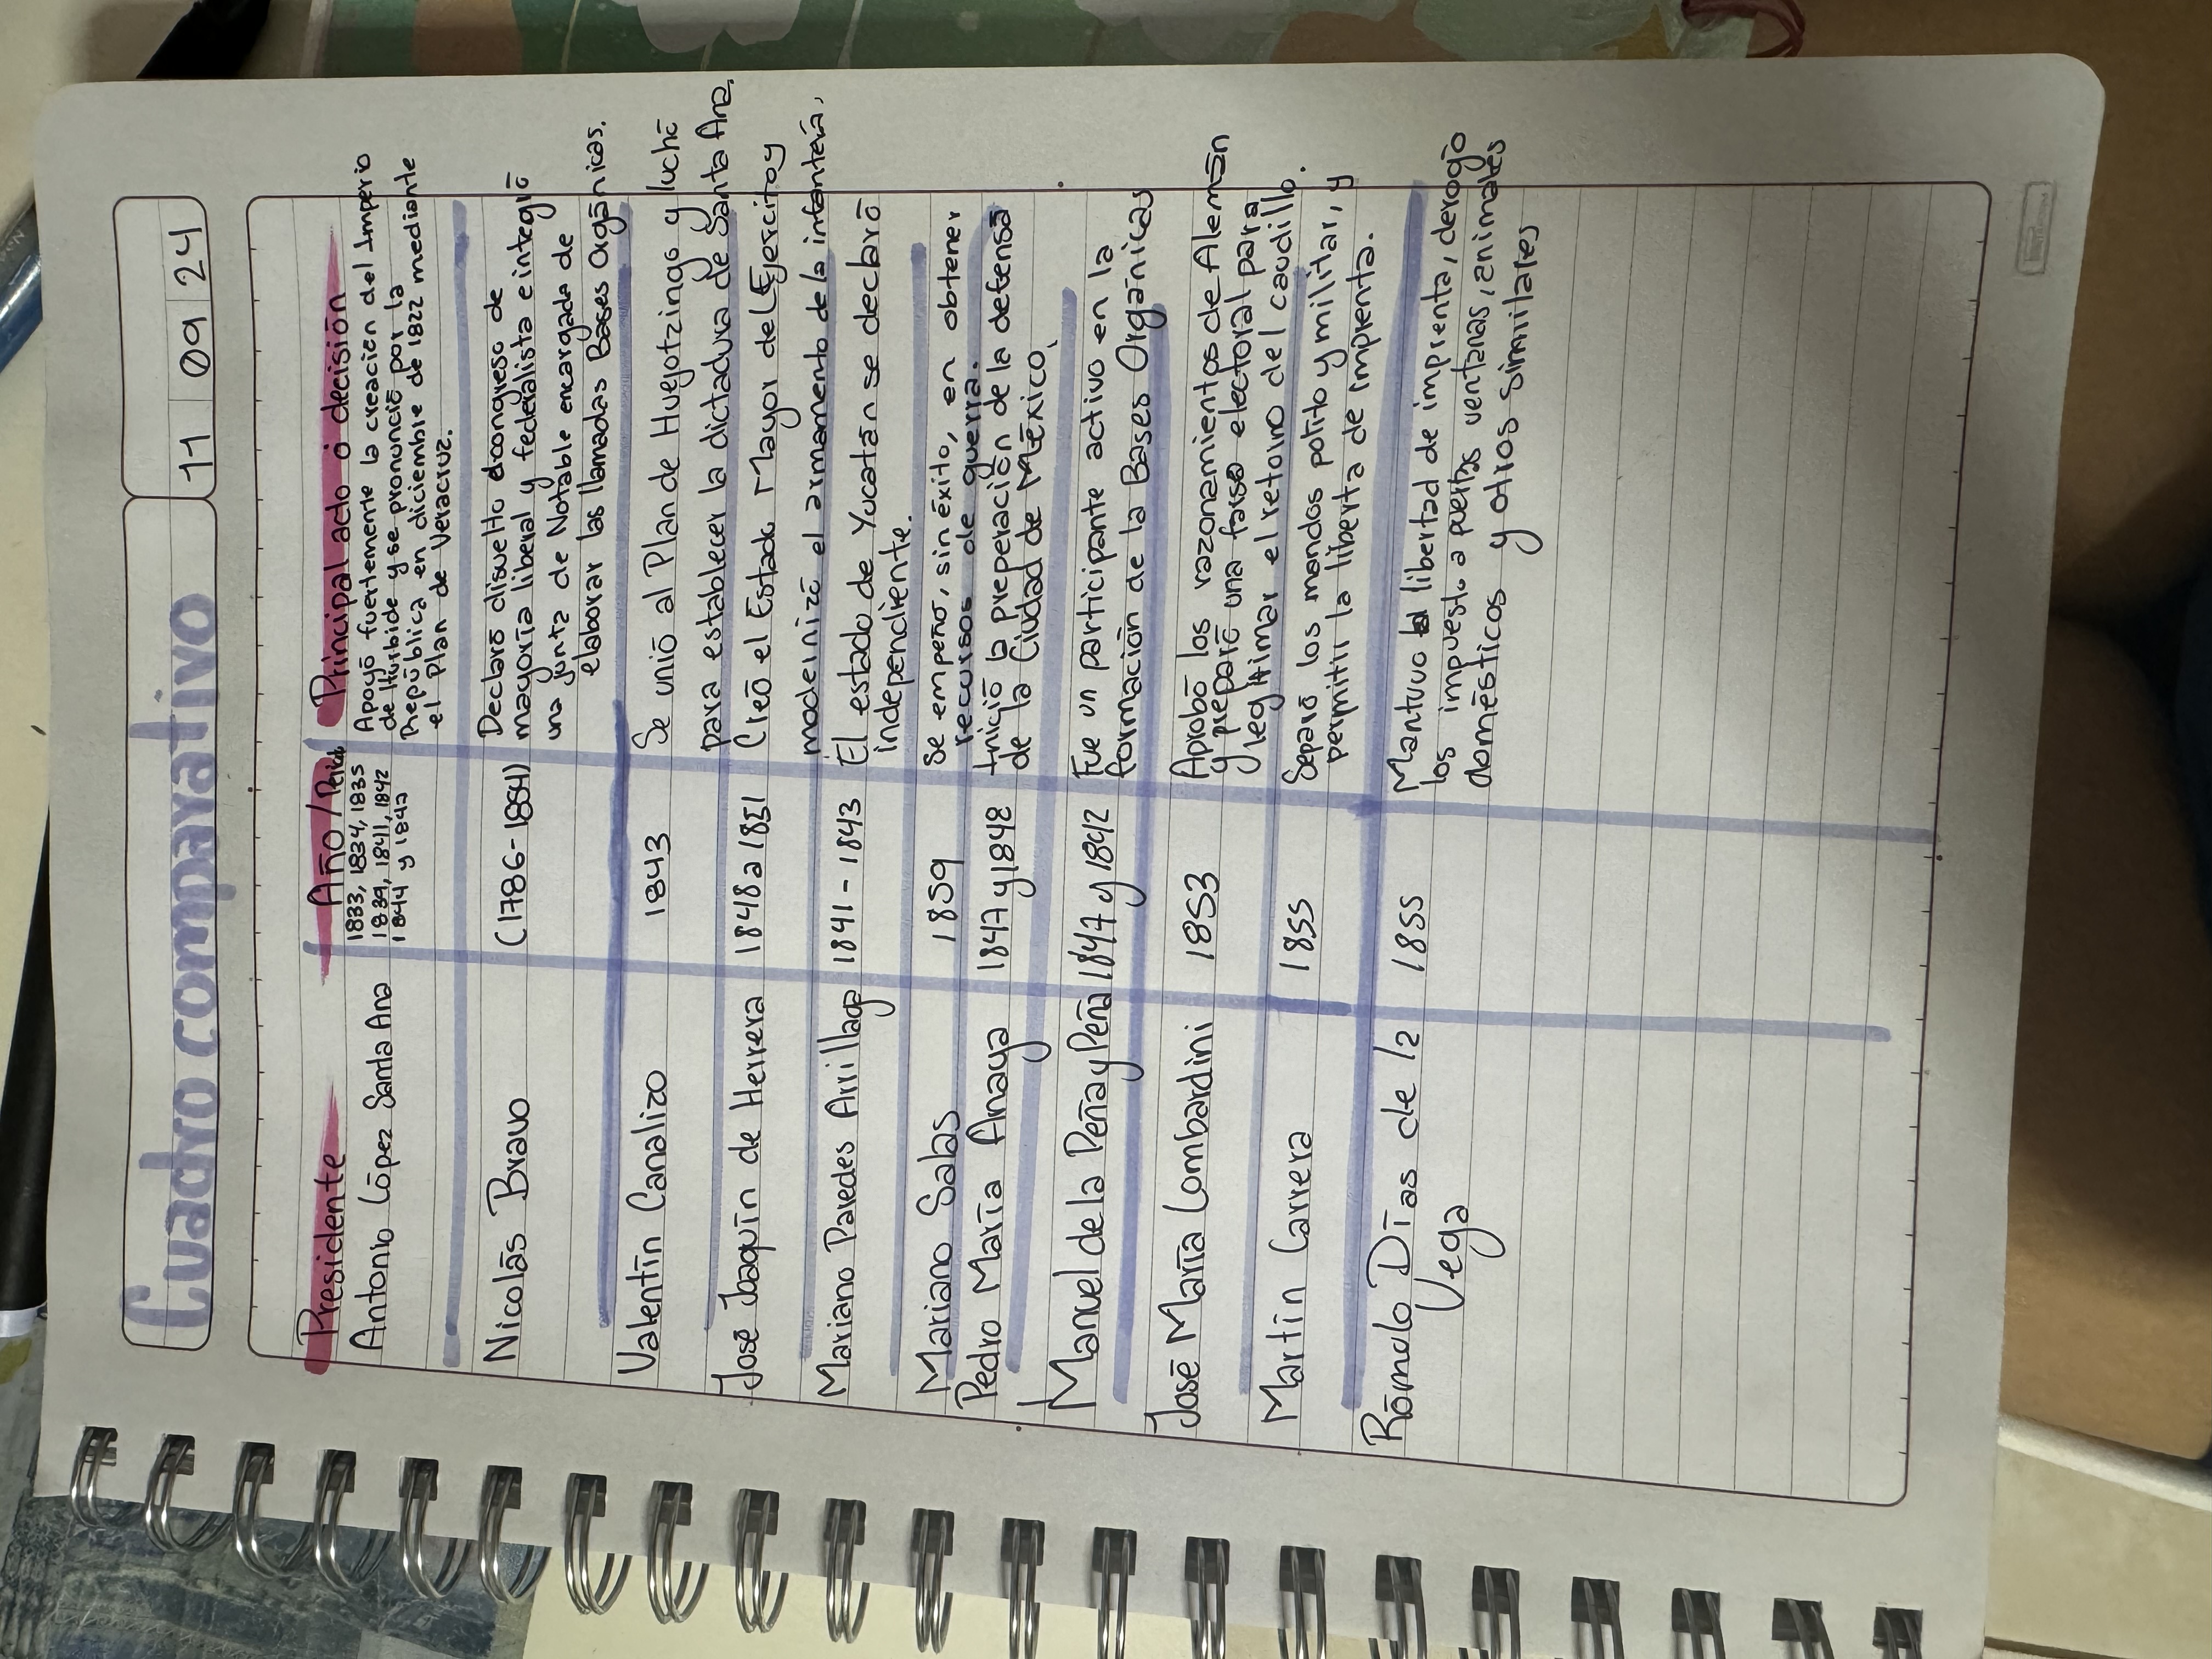 Cuadro comparativo
11 09 24
Presidente Año/Period Principal acto o decisión
Antonio López Santa Ana
1833, 1834, 1835
1839, 1841, 1842
1844 y 1847
Apoyó fuertemente la creación del Imperio
de Iturbide y se pronunció por la
República en diciembre de 1822 mediante
el Plan de Veracruz.
Nicolás Bravo
(1786-1854)
Declaró disuelto el congreso de
mayoría liberal y federalista e integró
una junta de Notable encargada de
elaborar las llamadas Bases Orgánicas.
Valentín Canalizo
1843
Se unió al Plan de Huejotzingo y luchó
para establecer la dictadura de Santa Ana.
José Joaquín de Herrera
1848 a 1851
Creó el Estado Mayor del Ejercito y
modernizó el armamento de la infantería.
Mariano Paredes Arrillaga
1841 - 1843
El estado de Yucatán se declaró
independiente.
Mariano Salas
1859
Se empeño, sin éxito, en obtener
recursos de guerra.
Pedro María Anaya
1847 y 1848
Inició la preperación de la defensa
de la Ciudad de México.
Manuel de la Peña y Peña
1847 y 1842
Fue un participante activo en la
formación de la Bases Orgánicas
José María Lombardini
1853
Aprobó los razonamientos de Alemán
y preparó una farse electoral para
legitimar el retorno del caudillo.
Martín Carrera
1855
Separó los mandos polito y militar, y
permitir la liberta de imprenta.
Rómulo Días de la
Vega
1855
Mantuvo la libertad de imprenta, derogó
los impuesto a puertas ventanas, animales
domésticos y otros similares